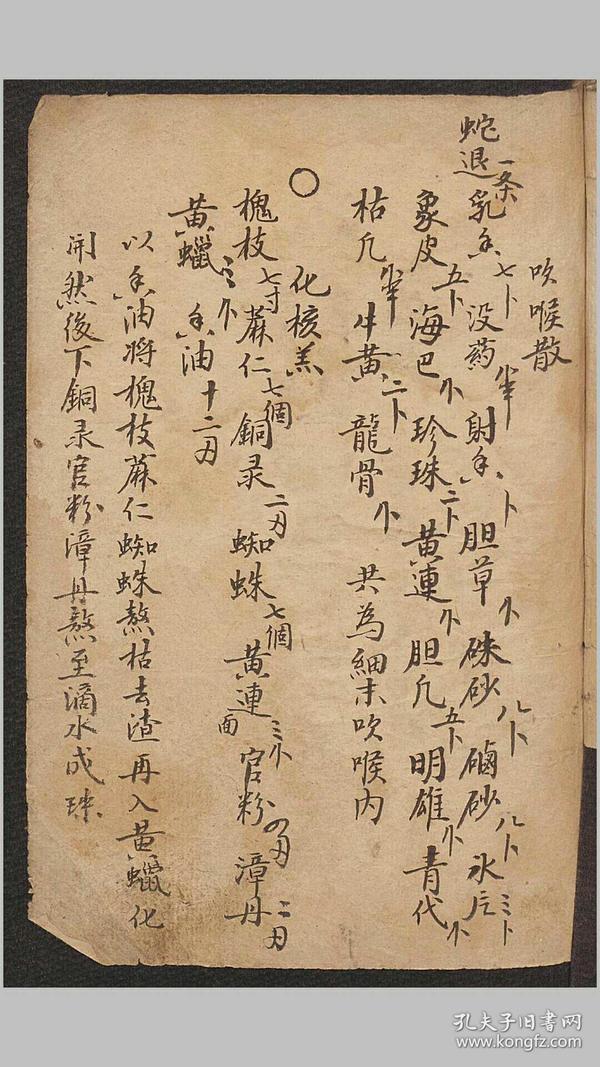 吹喉散
蛇退一条 乳香七卜 没药小半 射香卜 胆草小 硃砂八卜 硇砂八卜 氷片三卜
象皮五卜 海巴小 珍珠二卜 黄連小 胆凡五卜 明雄小 青代小
枯凡小半 牛黄二卜 龍骨小 共為細末吹喉内
○
化核羔
槐枝七寸 蔴仁七個 銅录二刃 蜘蛛七個 黄連面三小 官粉四刃 漳丹二刃
黄蠟三小 香油十二刃
以香油将槐枝蔴仁蜘蛛熬枯去渣再入黄蠟化
開然後下銅录官粉漳丹熬至滴水成珠
孔夫子旧书网
www.kongfz.com